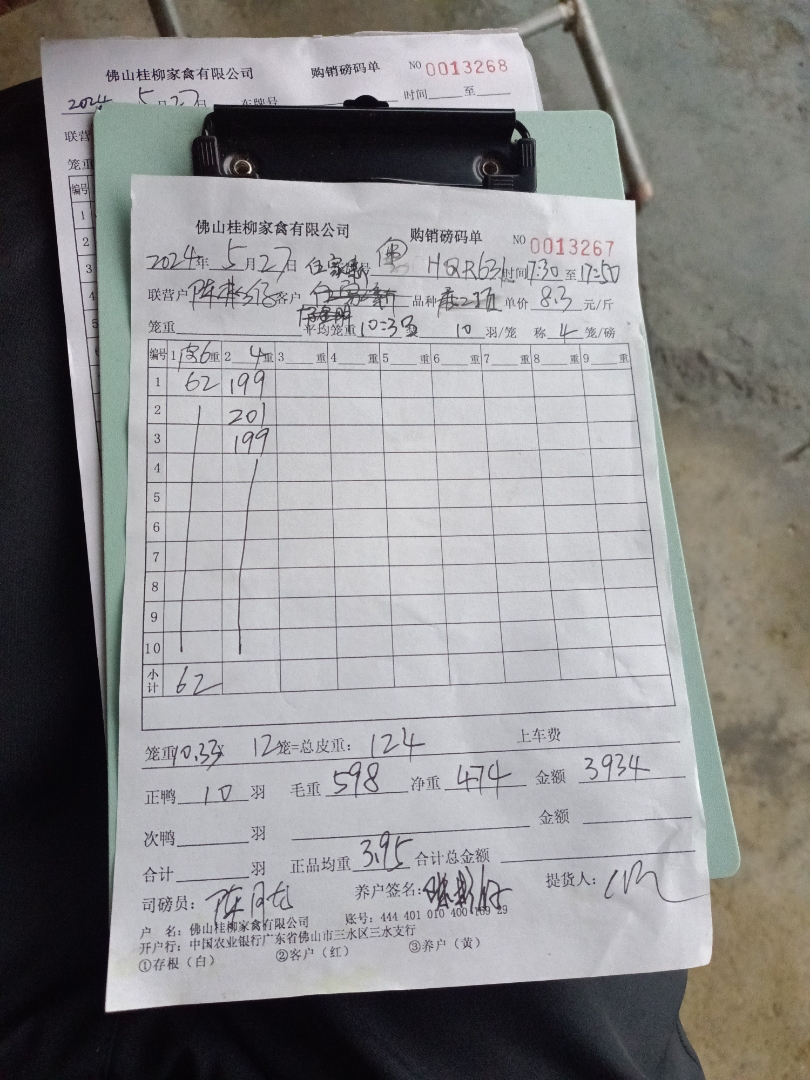 佛山桂柳家禽有限公司 购销磅码单 NO 0013268
2024 5月27日 车牌号 时间 至
联营
笼重
编号
1
2
3
4
5
佛山桂柳家禽有限公司 购销磅码单 NO 0013267
2024年5月27日 号 HQR631 时间17:30至17:50
联营户 客户 品种 单价 8.3 元/斤
笼重 平均笼重 10.33 10 羽/笼 称 4 笼/磅
编号 1 皮6重 2 4重 3 重 4 重 5 重 6 重 7 重 8 重 9 重
1 62 199
2 201
3 199
4
5
6
7
8
9
10
小计 62
笼重10.33 12笼=总皮重: 124 上车费
正鸭 10 羽 毛重 598 净重 474 金额 3934
次鸭 羽 金额
合计 羽 正品均重 3.95 合计总金额
司磅员: 养户签名: 提货人:
户 名: 佛山桂柳家禽有限公司 账号: 444 401 010 400 169 29
开户行: 中国农业银行广东省佛山市三水区三水支行
①存根（白） ②客户（红） ③养户（黄）